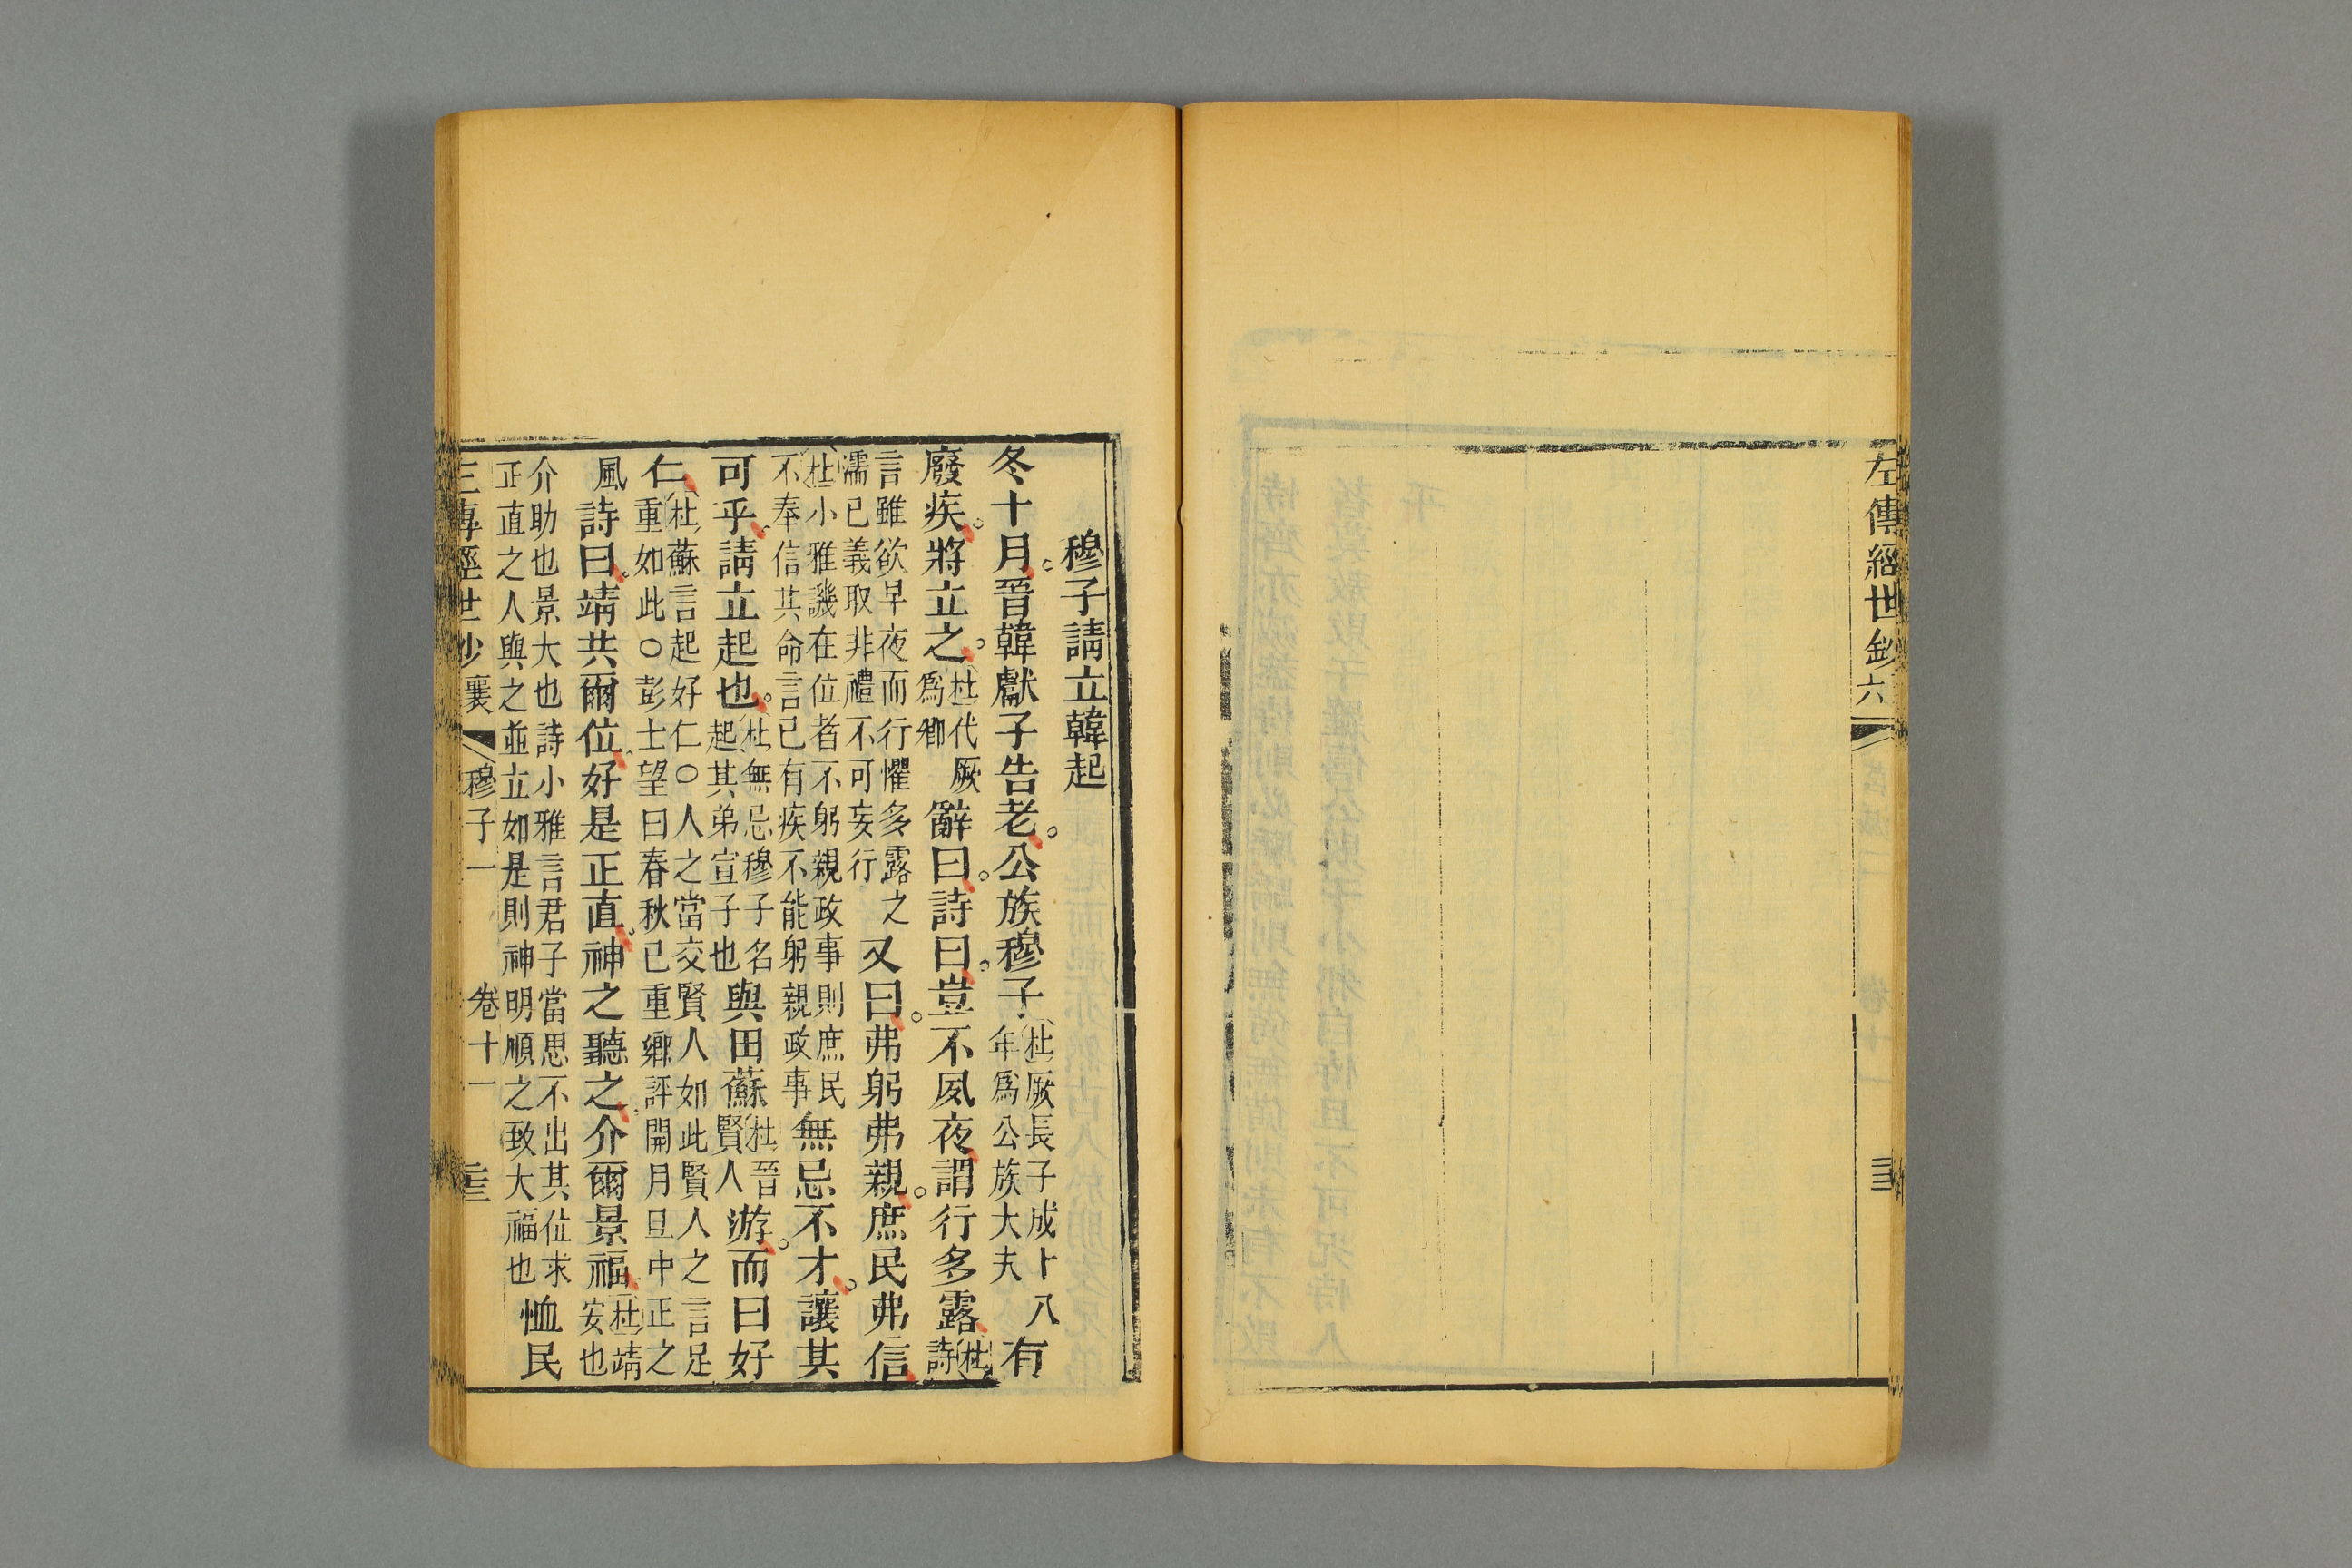 左傳經世鈔六
穆子請立韓起
冬十月晉韓獻子告老公族穆子杜厥長子成十八年爲公族大夫有
廢疾將立之杜代厥爲卿辭曰詩曰豈不夙夜謂行多露杜詩
言雖欲早夜而行懼多露之濡已義取非禮不可妄行又曰弗躬弗親庶民弗信
杜小雅譏在位者不躬親政事則庶民不奉信其命言已有疾不能躬親政事無忌不才讓其
可乎請立起也杜無忌穆子名起其弟宣子也與田蘇杜晉賢人游而曰好
仁杜蘇言起好仁○人之當交賢人如此賢人之言足重如此○彭士望曰春秋已重鄉評開月旦中正之
風詩曰靖共爾位好是正直神之聽之介爾景福杜靖安也
介助也景大也詩小雅言君子當思不出其位求正直之人與之並立如是則神明順之致大福也恤民
左傳經世鈔 襄 穆子一 卷十一